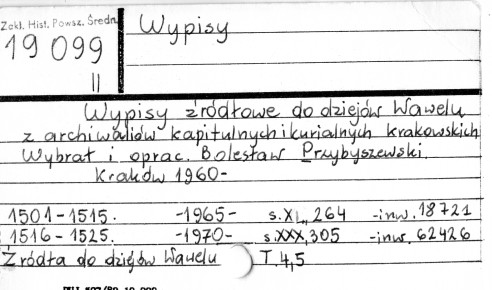 Zakł. Hist. Powsz. Średn.
19 099
II
Wypisy
Wypisy źródłowe do dziejów Wawelu
z archiwaliów kapitulnych i kurialnych krakowskich
Wybrał i oprac. Bolesław Przybyszewski.
Kraków 1960-
1501-1515. -1965- s.XL, 264 -inw. 18721
1516-1525. -1970- s.XXX, 305 -inw. 62426
Źródła do dziejów Wawelu T. 4,5